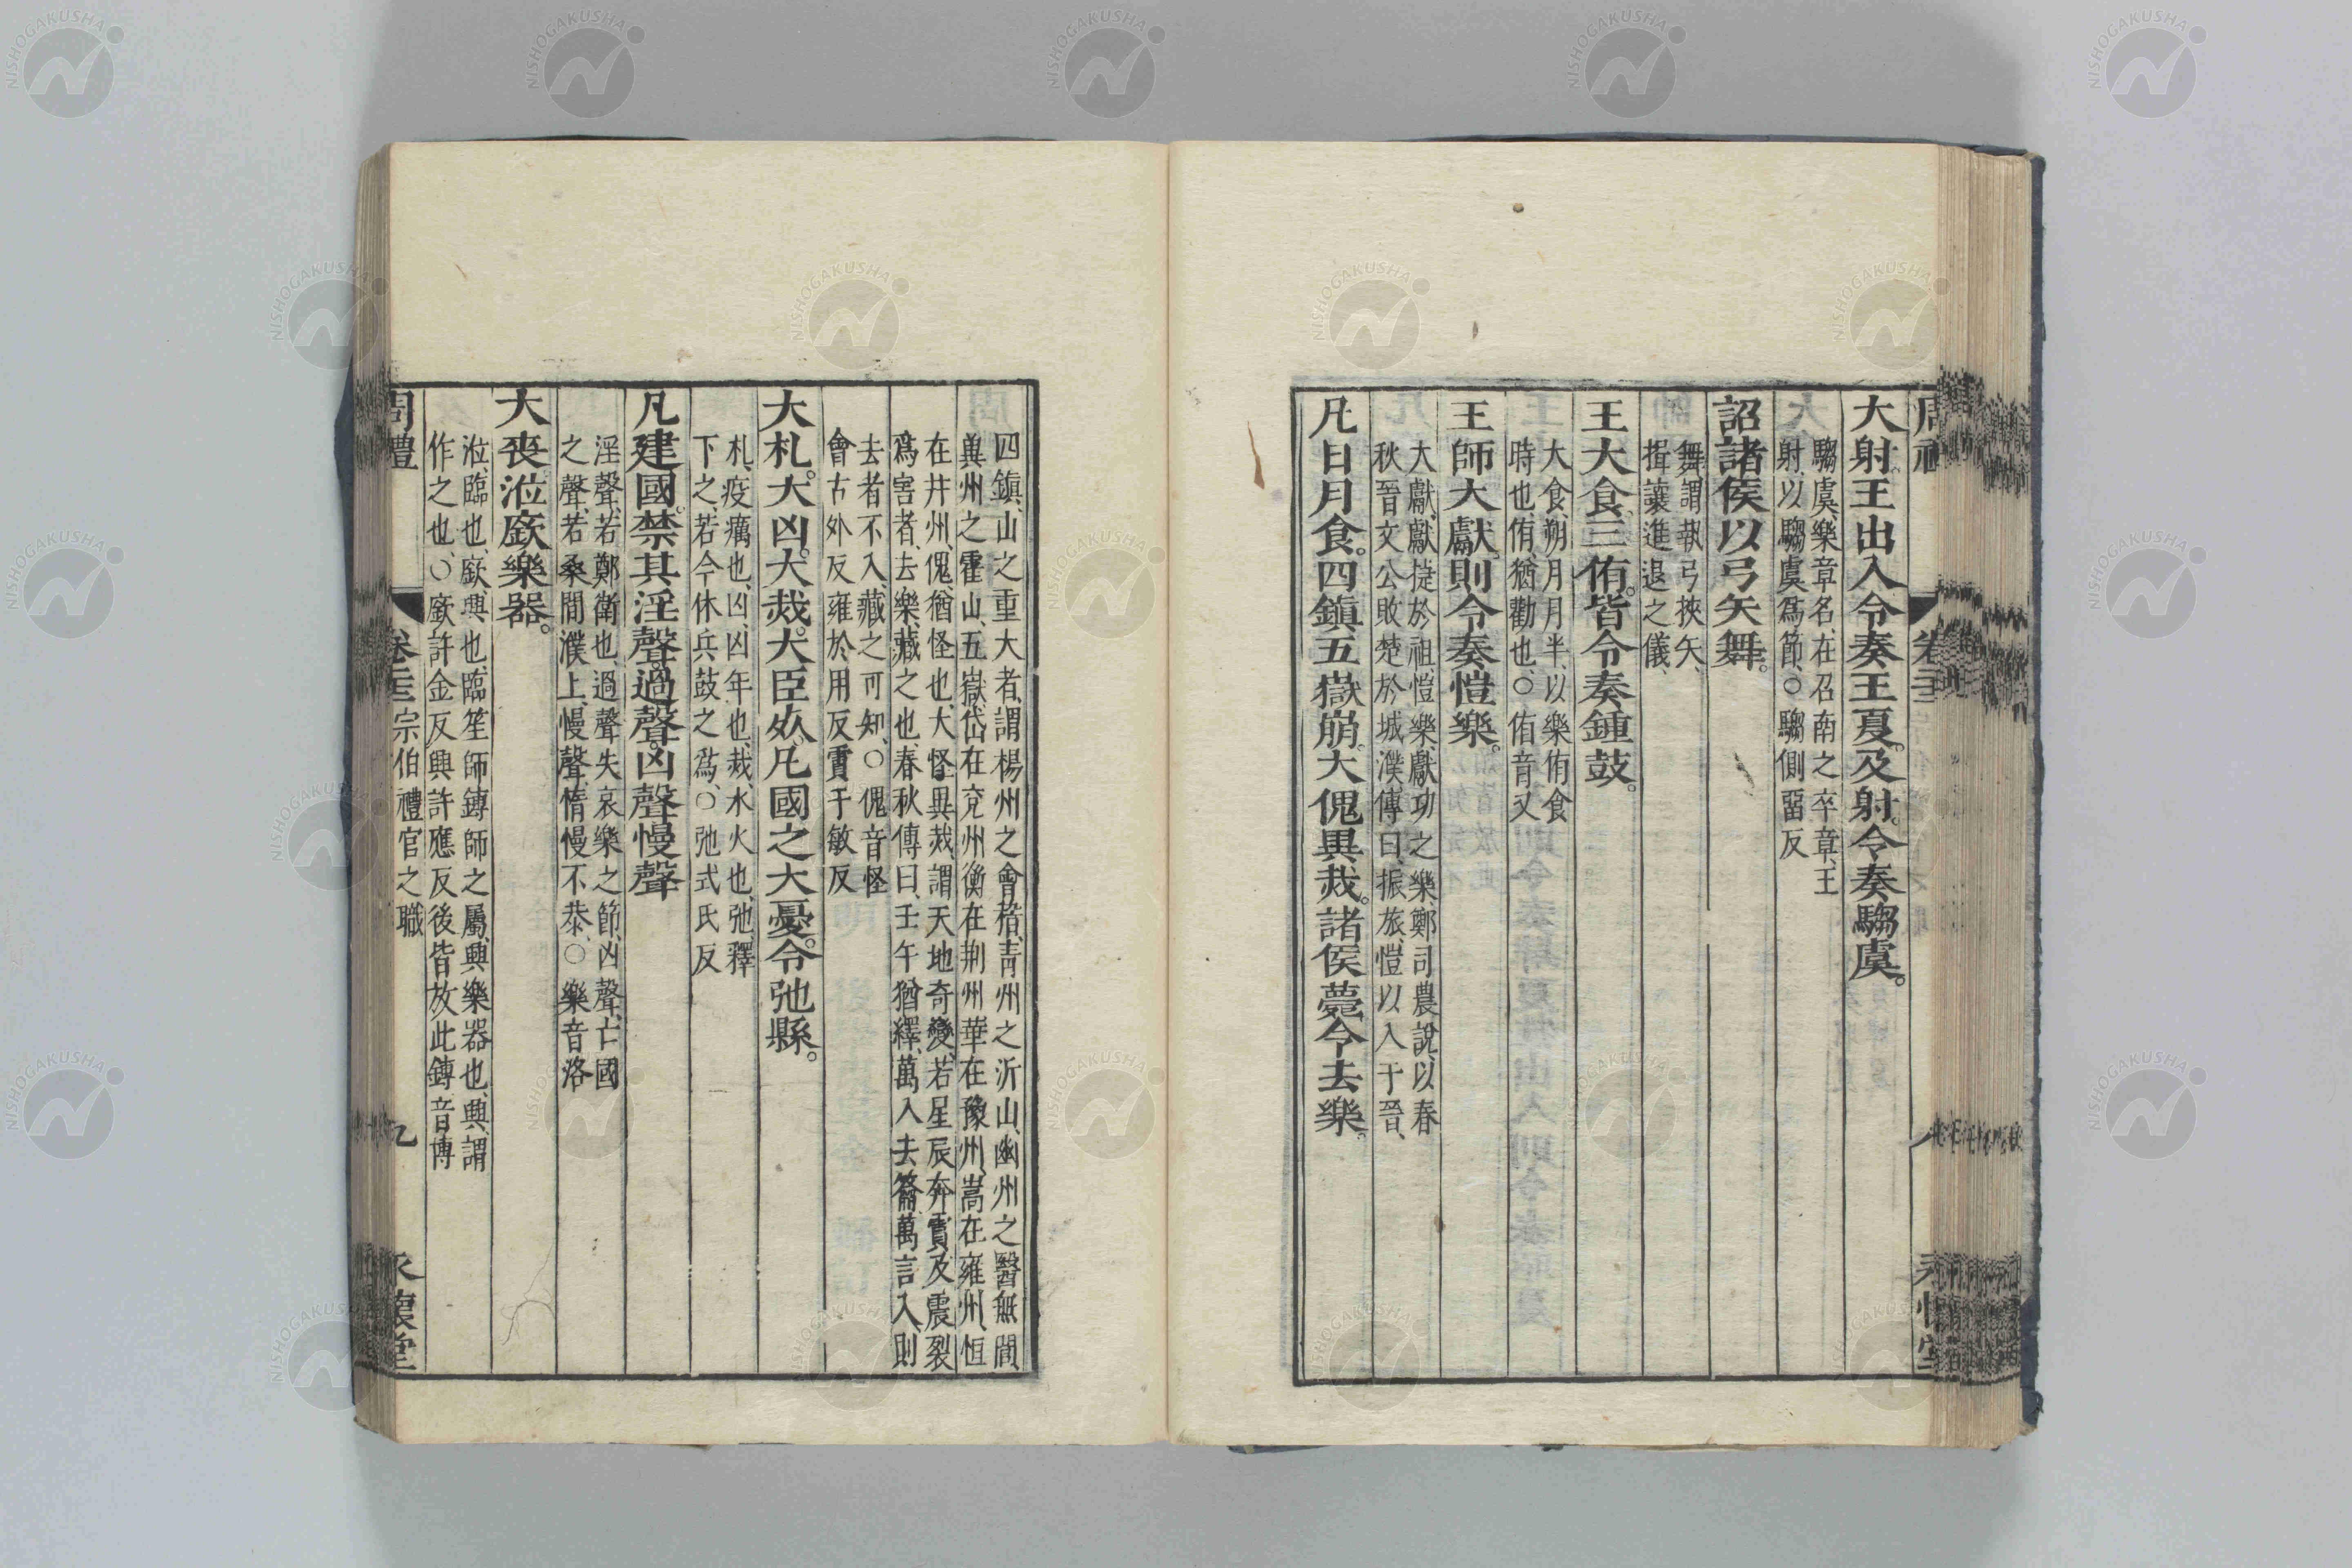 大射王出入令奏王夏。及射。令奏騶虞。
騶虞、樂章名、在召南之卒章、王
射、以騶虞爲節、○騶側畱反
詔諸侯以弓矢舞。
舞謂執弓挾矢、
揖讓進退之儀、
王大食、三侑。皆令奏鍾鼓。
大食、朔月月半、以樂侑食
時也、侑、猶勸也、○侑音又
王師大獻、則令奏愷樂。
大獻、獻捷於祖、愷樂、獻功之樂、鄭司農說、以春
秋晉文公敗楚於城濮、傳曰、振旅、愷以入于晉、
凡日月食。四鎮五嶽崩。大傀異烖。諸侯薨。令去樂。
周禮
卷二十二
八
永懷堂
四鎮、山之重大者、謂楊州之會稽、靑州之沂山、幽州之醫無閭、
冀州之霍山、五嶽、岱在兗州、衡在荆州、華在豫州、嵩在雍州、恒
在幷州、傀猶怪也、大怪異烖、謂天地奇變、若星辰奔霣、及震裂
爲害者、去樂、藏之也、春秋傳曰、壬午猶繹、萬入去籥、萬言入、則
去者不入、藏之可知、○傀音怪
會古外反雍於用反霣于敏反
大札。大凶。大烖。大臣㱙。凡國之大憂。令弛縣。
札、疫癘也、凶、凶年也、烖、水火也、弛、釋
下之、若今休兵鼓之爲、○弛式氏反
凡建國。禁其淫聲。過聲。凶聲慢聲
淫聲、若鄭衛也、過聲失哀樂之節、凶聲、亡國
之聲、若桑間濮上、慢聲、惰慢不恭、○樂音洛
大喪。涖廞樂器。
涖、臨也、廞、興也、臨笙師鎛師之屬、興樂器也、興、謂
作之也、○廞許金反興許應反後皆放此鎛音博
周禮
卷二十二 宗伯禮官之職
九
永懷堂